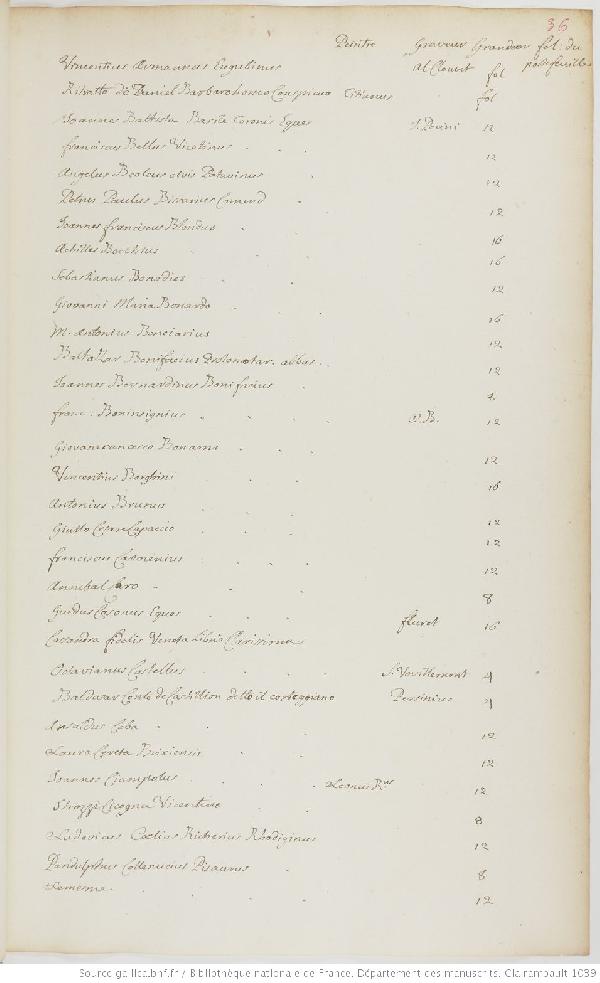 36
Peintre Graveur Grandeur fol: du portefeuilles
Vincentius Armannus Eugubinus Al Clouet fol
Ritratto di Daniel Barbaro Titianus fol
Joannes Battista Basile Coronis Eques 12
franciscus Bellus Vicetinus 12
Angelus Beolcus civis Patavinus 12
Petrus Paulus 12
Joannes franciscus Blondus 16
Achilles Bocchius 16
Sebastianus 12
Giovanni Maria Bonardo 16
M. Antonius Bonciarius 12
Baltassar Bonifacius Protonotar. abbas 12
Joannes Bernardinus Bonifacius 4
franc: Boninsignius 12
Bonarni 12
Vincentius Borghini 16
Antonius Brunus 12
Giulio Cesare Capaccio 12
franciscus 12
Annibal Caro 8
Guidus Casonus Eques fluret 16
Casandra fidelis Veneta
Octavianus Castellus 4
Baldasar Conte de Castillion detto il cortegiano 4
Ansaldus Ceba 12
Laura Cereta Brixiensis 12
Joannes Ciampolus 12
Strozzi Cicogna Vicentino 8
Ludovicus Coelius Richerius Rhodiginus 12
Pandulphus Collenucius Pisaurus 8
Le meme 12
Source gallica.bnf.fr / Bibliothèque nationale de France. Département des manuscrits. Clairambault 1039